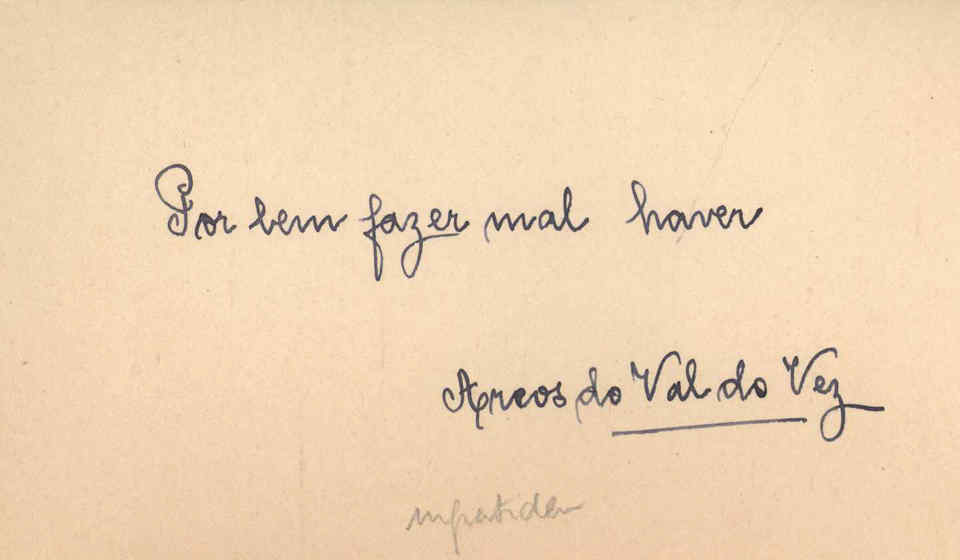 Por bem fazer mal haver
Arcos do Val do Vez